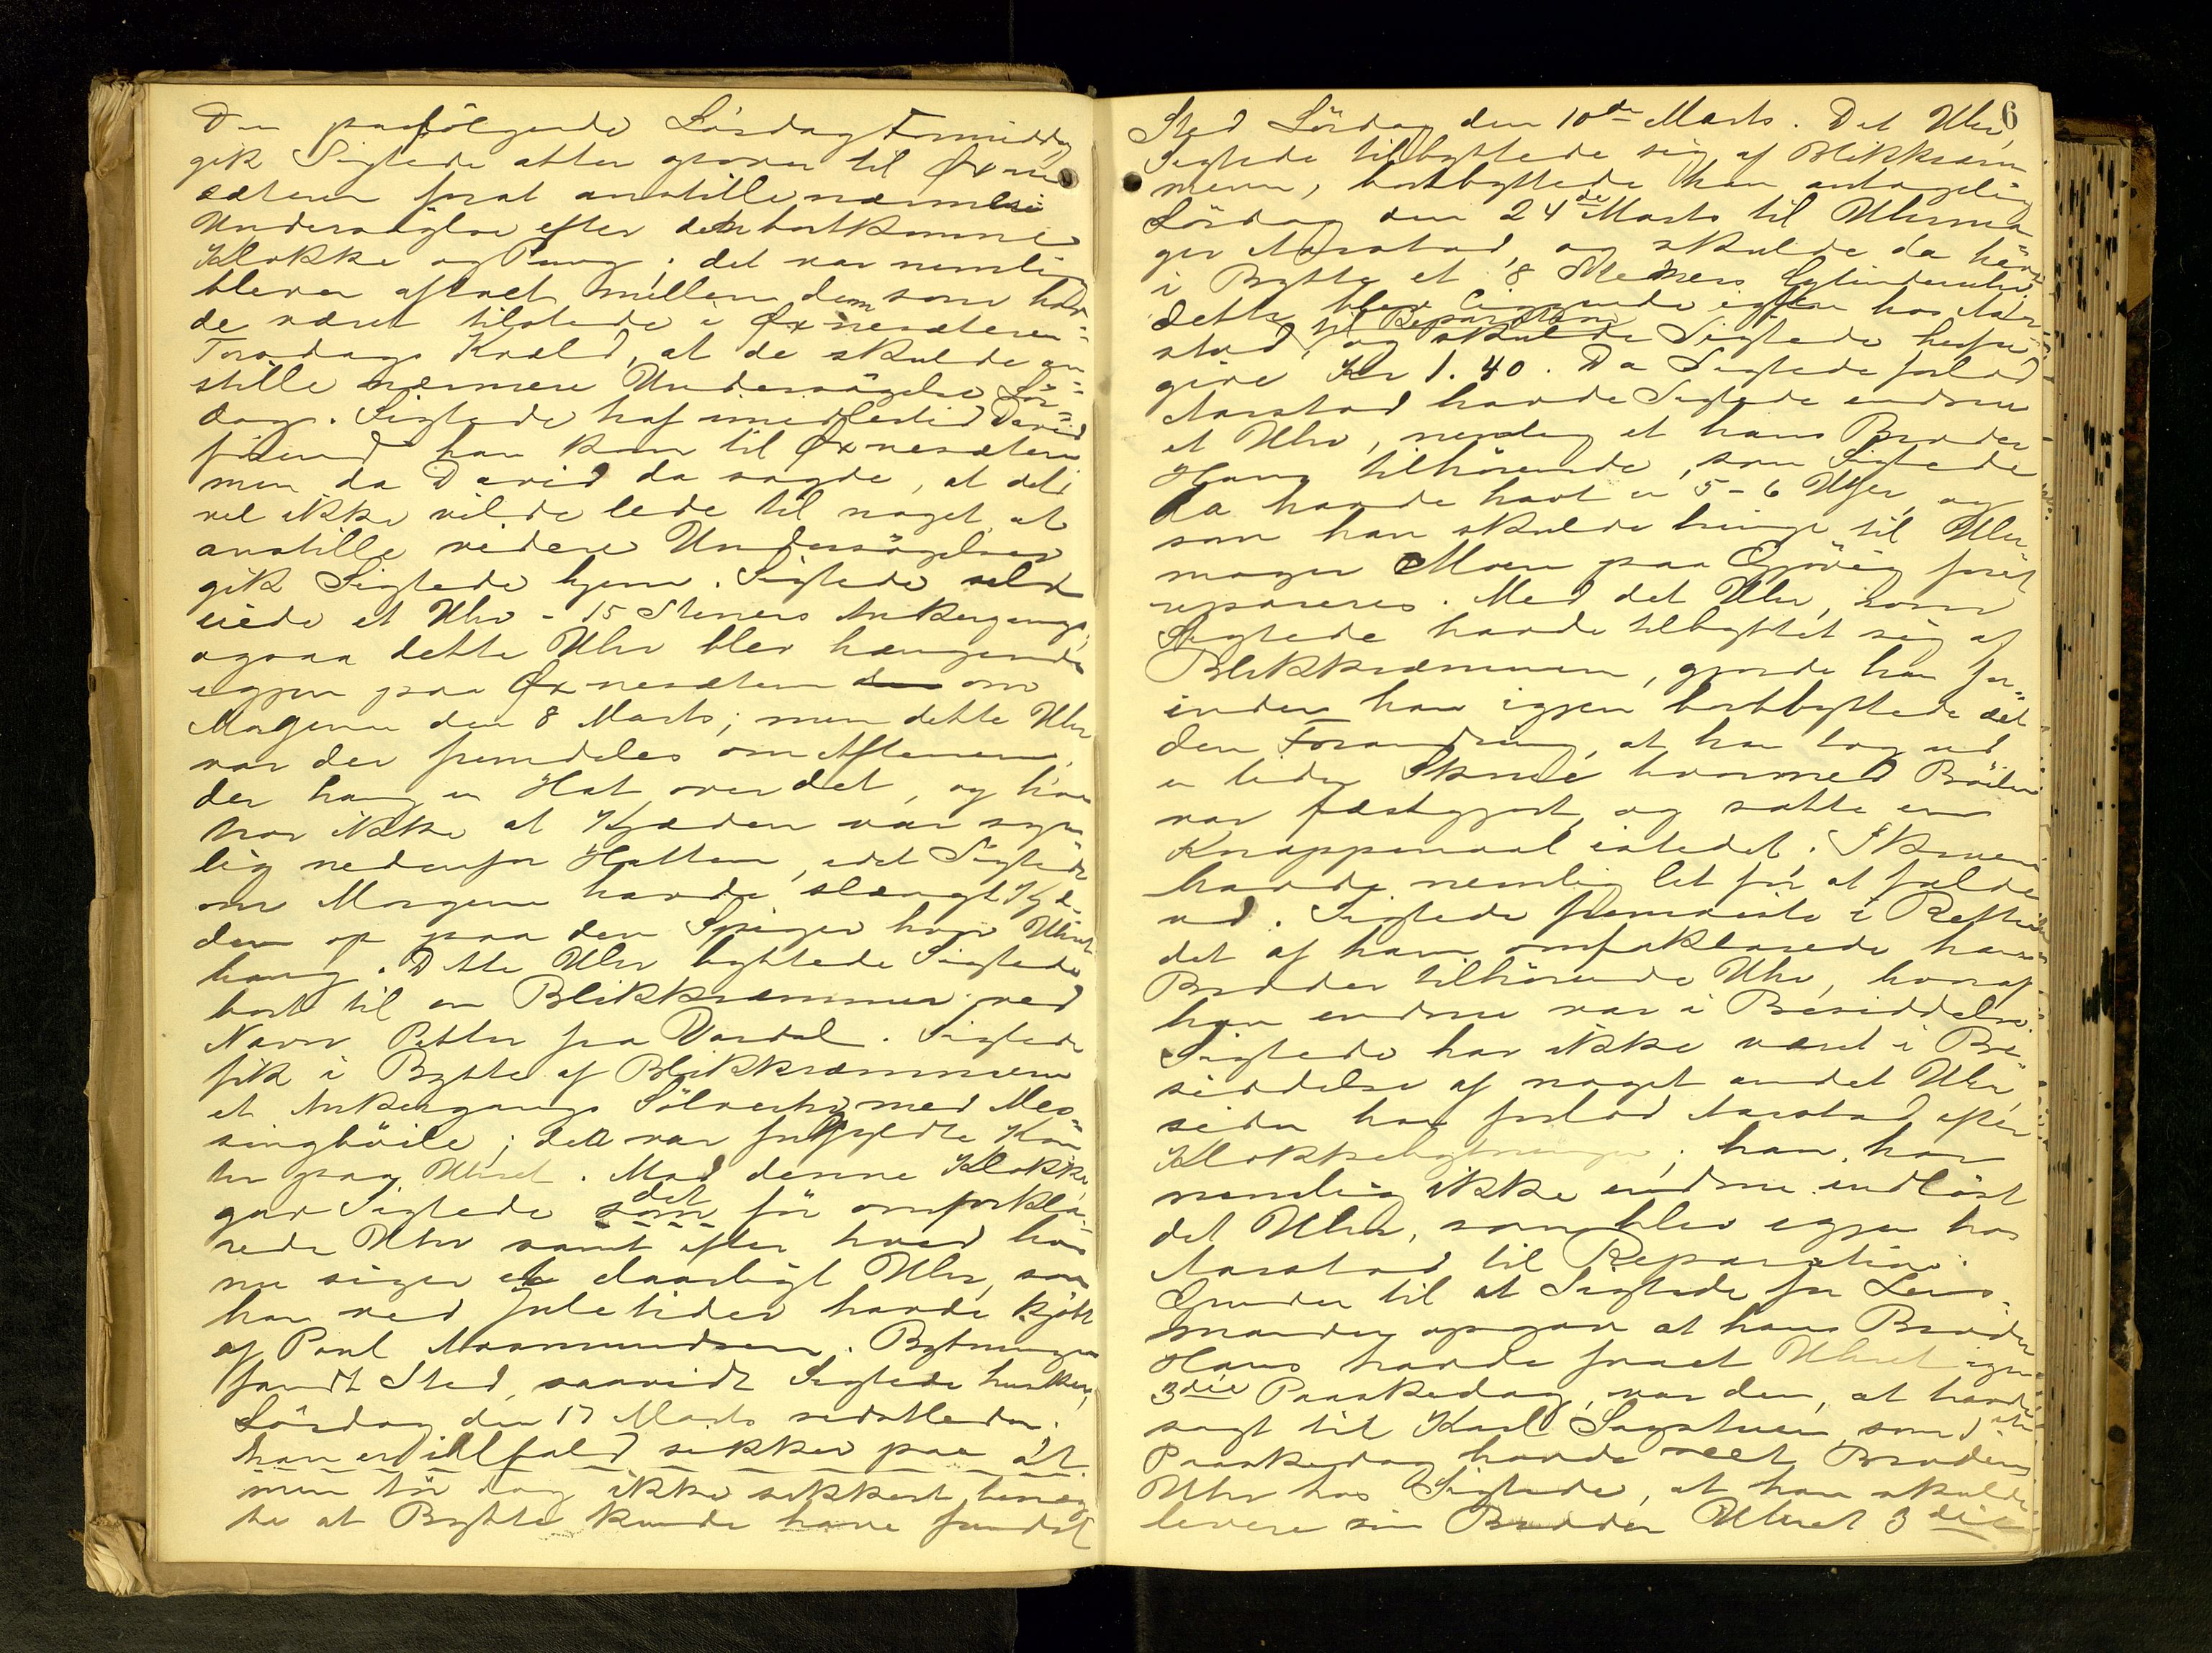 Den paafölgende Lörsdag Formiddag
gik Sigtede atter opover til Øxne
sæteren forat anstille nærmere
Undersögelse efter den bortkomne
Klokke og Pung; det var nemlig
bleven aftalt mellem dem som hav-
de været tilstede i Øxnesæteren
Torsdags Kvæld, at de skulde an-
stille nærmere Undersögelse Lör-
dag. Sigtede traf imidlertid David
förend han kom til Øxnesæteren
men da David da sagde, at det
vel ikke vilde lede til noget at
anstille videre Undersögelser
gik Sigtede hjem. Sigtede selv
eiede et Uhr - 15 Steners Ankergangs,
ogsaa dette Uhr blev hængende
igjen paa Øxnesæteren om
Morgenen den 8 Marts; men dette Uhr
var der fremdeles om Aftenen,
der hang en Hat over det, og han
tror ikke at Kjæden var syn-
lig nedenfor Hatten, idet Sigtede
om Morgenen havde slængt Kjæ-
den op paa den Spiger hvor Uhret
hang. Dette Uhr byttede Sigtede
bort til en Blikkræmmer ved
Navn Petter fra Vardal. Sigtede
fik i Bytte af Blikkræmmeren
et Ankergangs Sölvuhr med Mes-
singböile; det var forgyldte Kan-
ter paa Uhret. Mod denne Klokke
gav Sigtede det för omforkla-
rede Uhr samt efter hvad han
nu siger et daarligt Uhr, som
han ved Juletider havde kjöbt
af Paul Amundsen. Bytningen
fandt Sted, saavidt Sigtede husker,
Lördag den 17 Marts sidstleden.
han er ialfald sikker paa at
men tör dog ikke sikkert benæg
te at Bytte kunde have fundet
6
Sted Lördag den 10de Marts. Det Uhr,
Sigtede tilbyttede sig af Blikkræm
meren, bortbyttede han antagelig
Lördag den 24de Marts til Uhrma-
ger Aarstad, og skulde da have
i Bytte et 8 Steners Cylinderuhr,
dette blev liggende igjen hos Aar-
til Reparation
stad, og skulde Sigtede herfor
give Kr 1.40. Da Sigtede forlod
Aarstad havde Sigtede endnu
et Uhr, nemlig et hans Broder
Hans tilhörende, som Sigtede
da havde havt en 5-6 Uger, og
som han skulde bringe til Uhr-
mager Moen paa Gjövig forat
repareres. Med det Uhr, som
Sigtede havde tilbyttet sig af
Blikkræmmeren, gjorde han for-
inden han igjen bortbyttede det
den Forandring, at han tog ud
en liden Skrue hvormed Böilen
var fæstgjort, og satte en
Knappenaal istedet. Skruen
havde nemlig let for at falde
ud. Sigtede fremviste i Retten
det af ham omforklarede hans
Broder tilhörende Uhr, hvoraf
han endnu var i Besiddelse.
Sigtede har ikke været i Be-
siddelse af noget andet Uhr,
siden han forlod Aarstad efter
Klokkebytningen; han har
nemlig ikke endnu indlöst
det Uhr, som blev igjen hos
Aarstad til Reparation.
Grunden til at Sigtede for Lens-
manden opgav at hans Broder
Hans havde faaet Uhret igjen
3die Paaskedag, var den, at han
sagt til Karl Sagstuen, som
Paaskedag havde seet Broderens
Uhr hos Sigtede, at han skulde
levere sin Broder Uhret 3die